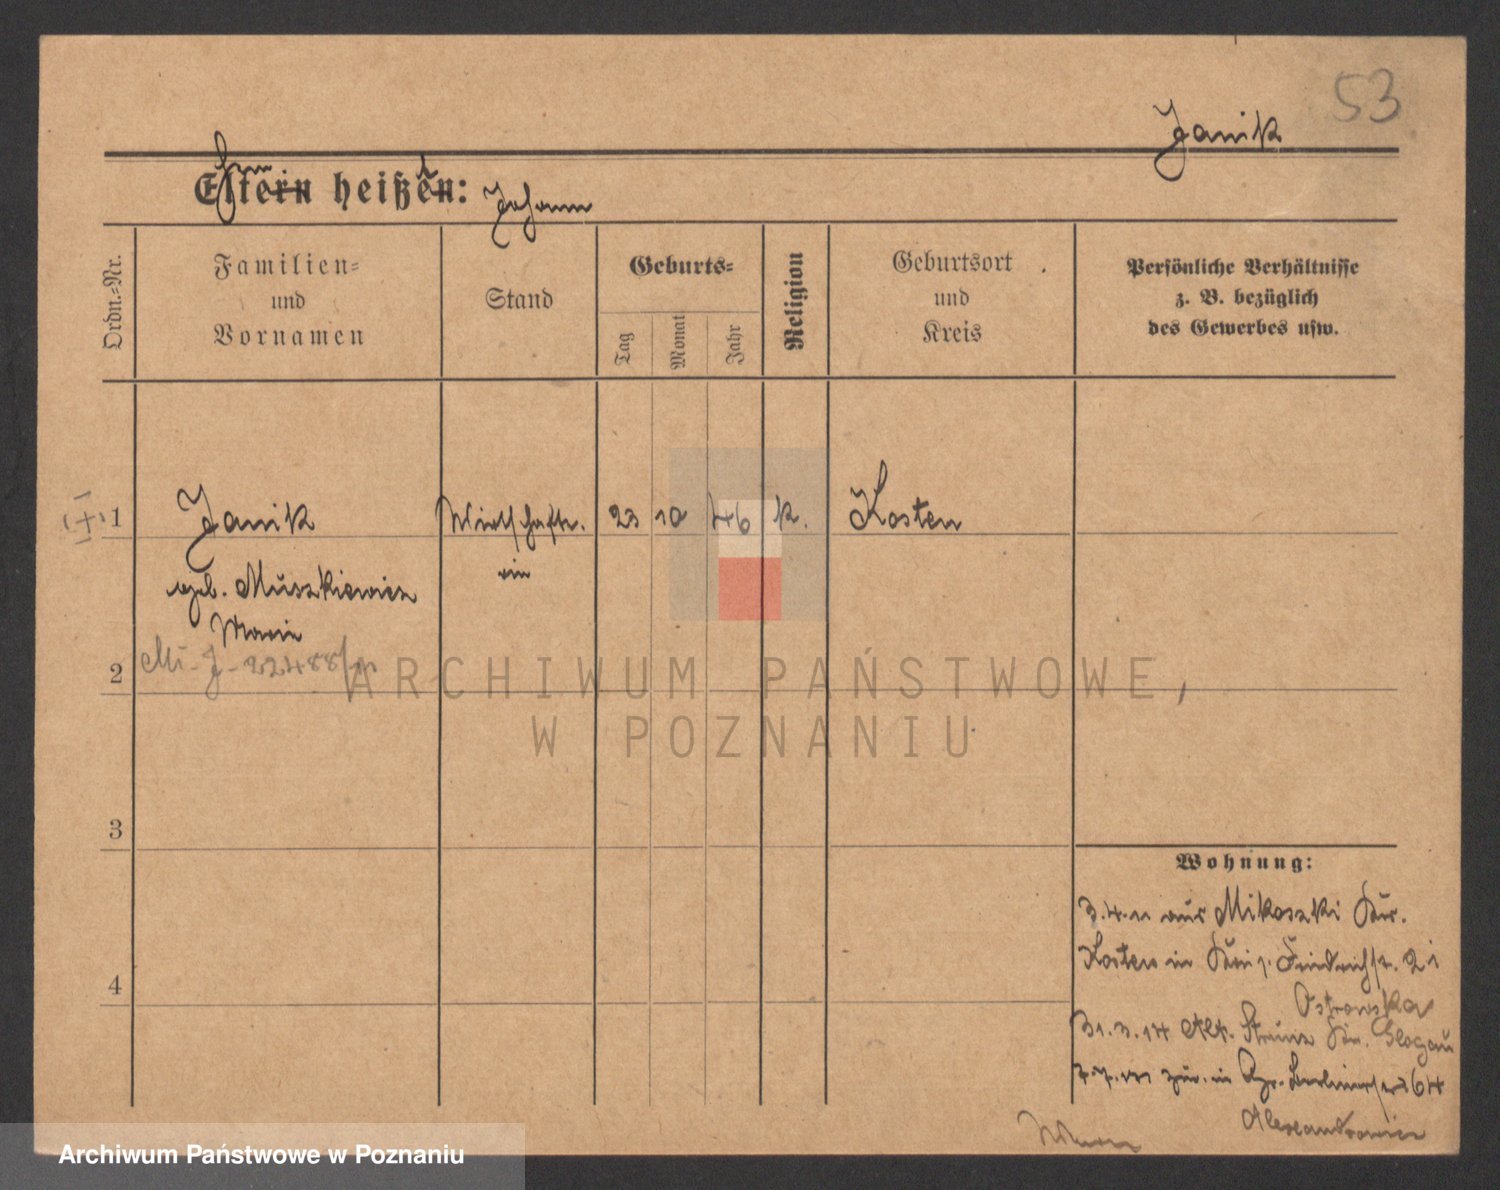 53
Janik
Eltern heißen:
Johann
Ordn.-Nr.
Familien-
und
Vornamen
Stand
Geburts-
Tag
Monat
Jahr
Religion
Geburtsort
und
Kreis
Persönliche Verhältnisse
z. B. bezüglich
des Gewerbes usw.
1 Janik Wirtschafts. 23 10 46 k. Kosten
in
geb. Muszkiewicz
Marie
2
ARCHIWUM PAŃSTWOWE,
W POZNANIU
3
Wohnung:
3.4.11 aus Mikoszki Kr.
Kosten in 21
4
Ostrowska
31.3.14 Kr. Glogau
zur. in 64
Archiwum Państwowe w Poznaniu